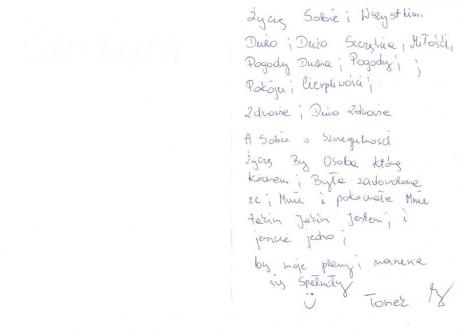 Życzę Sobie i Wszystkim.
Dużo i Dużo Szczęścia, Miłości,
Pogody Ducha i Pogody; i
Pokoju i Cierpliwości;
Zdrowie i Dużo Zdrowie
A Sobie w Szczególności
Życzę By Osoba którą
Kocham i Była zadowolona
ze; Mnie i pokochała Mnie
takim Jakim Jestem; i
jeszcze jedno;
by moje plany i marzenia
się Spełniły
Tomek